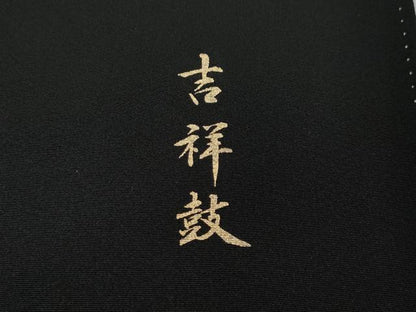 吉祥鼓